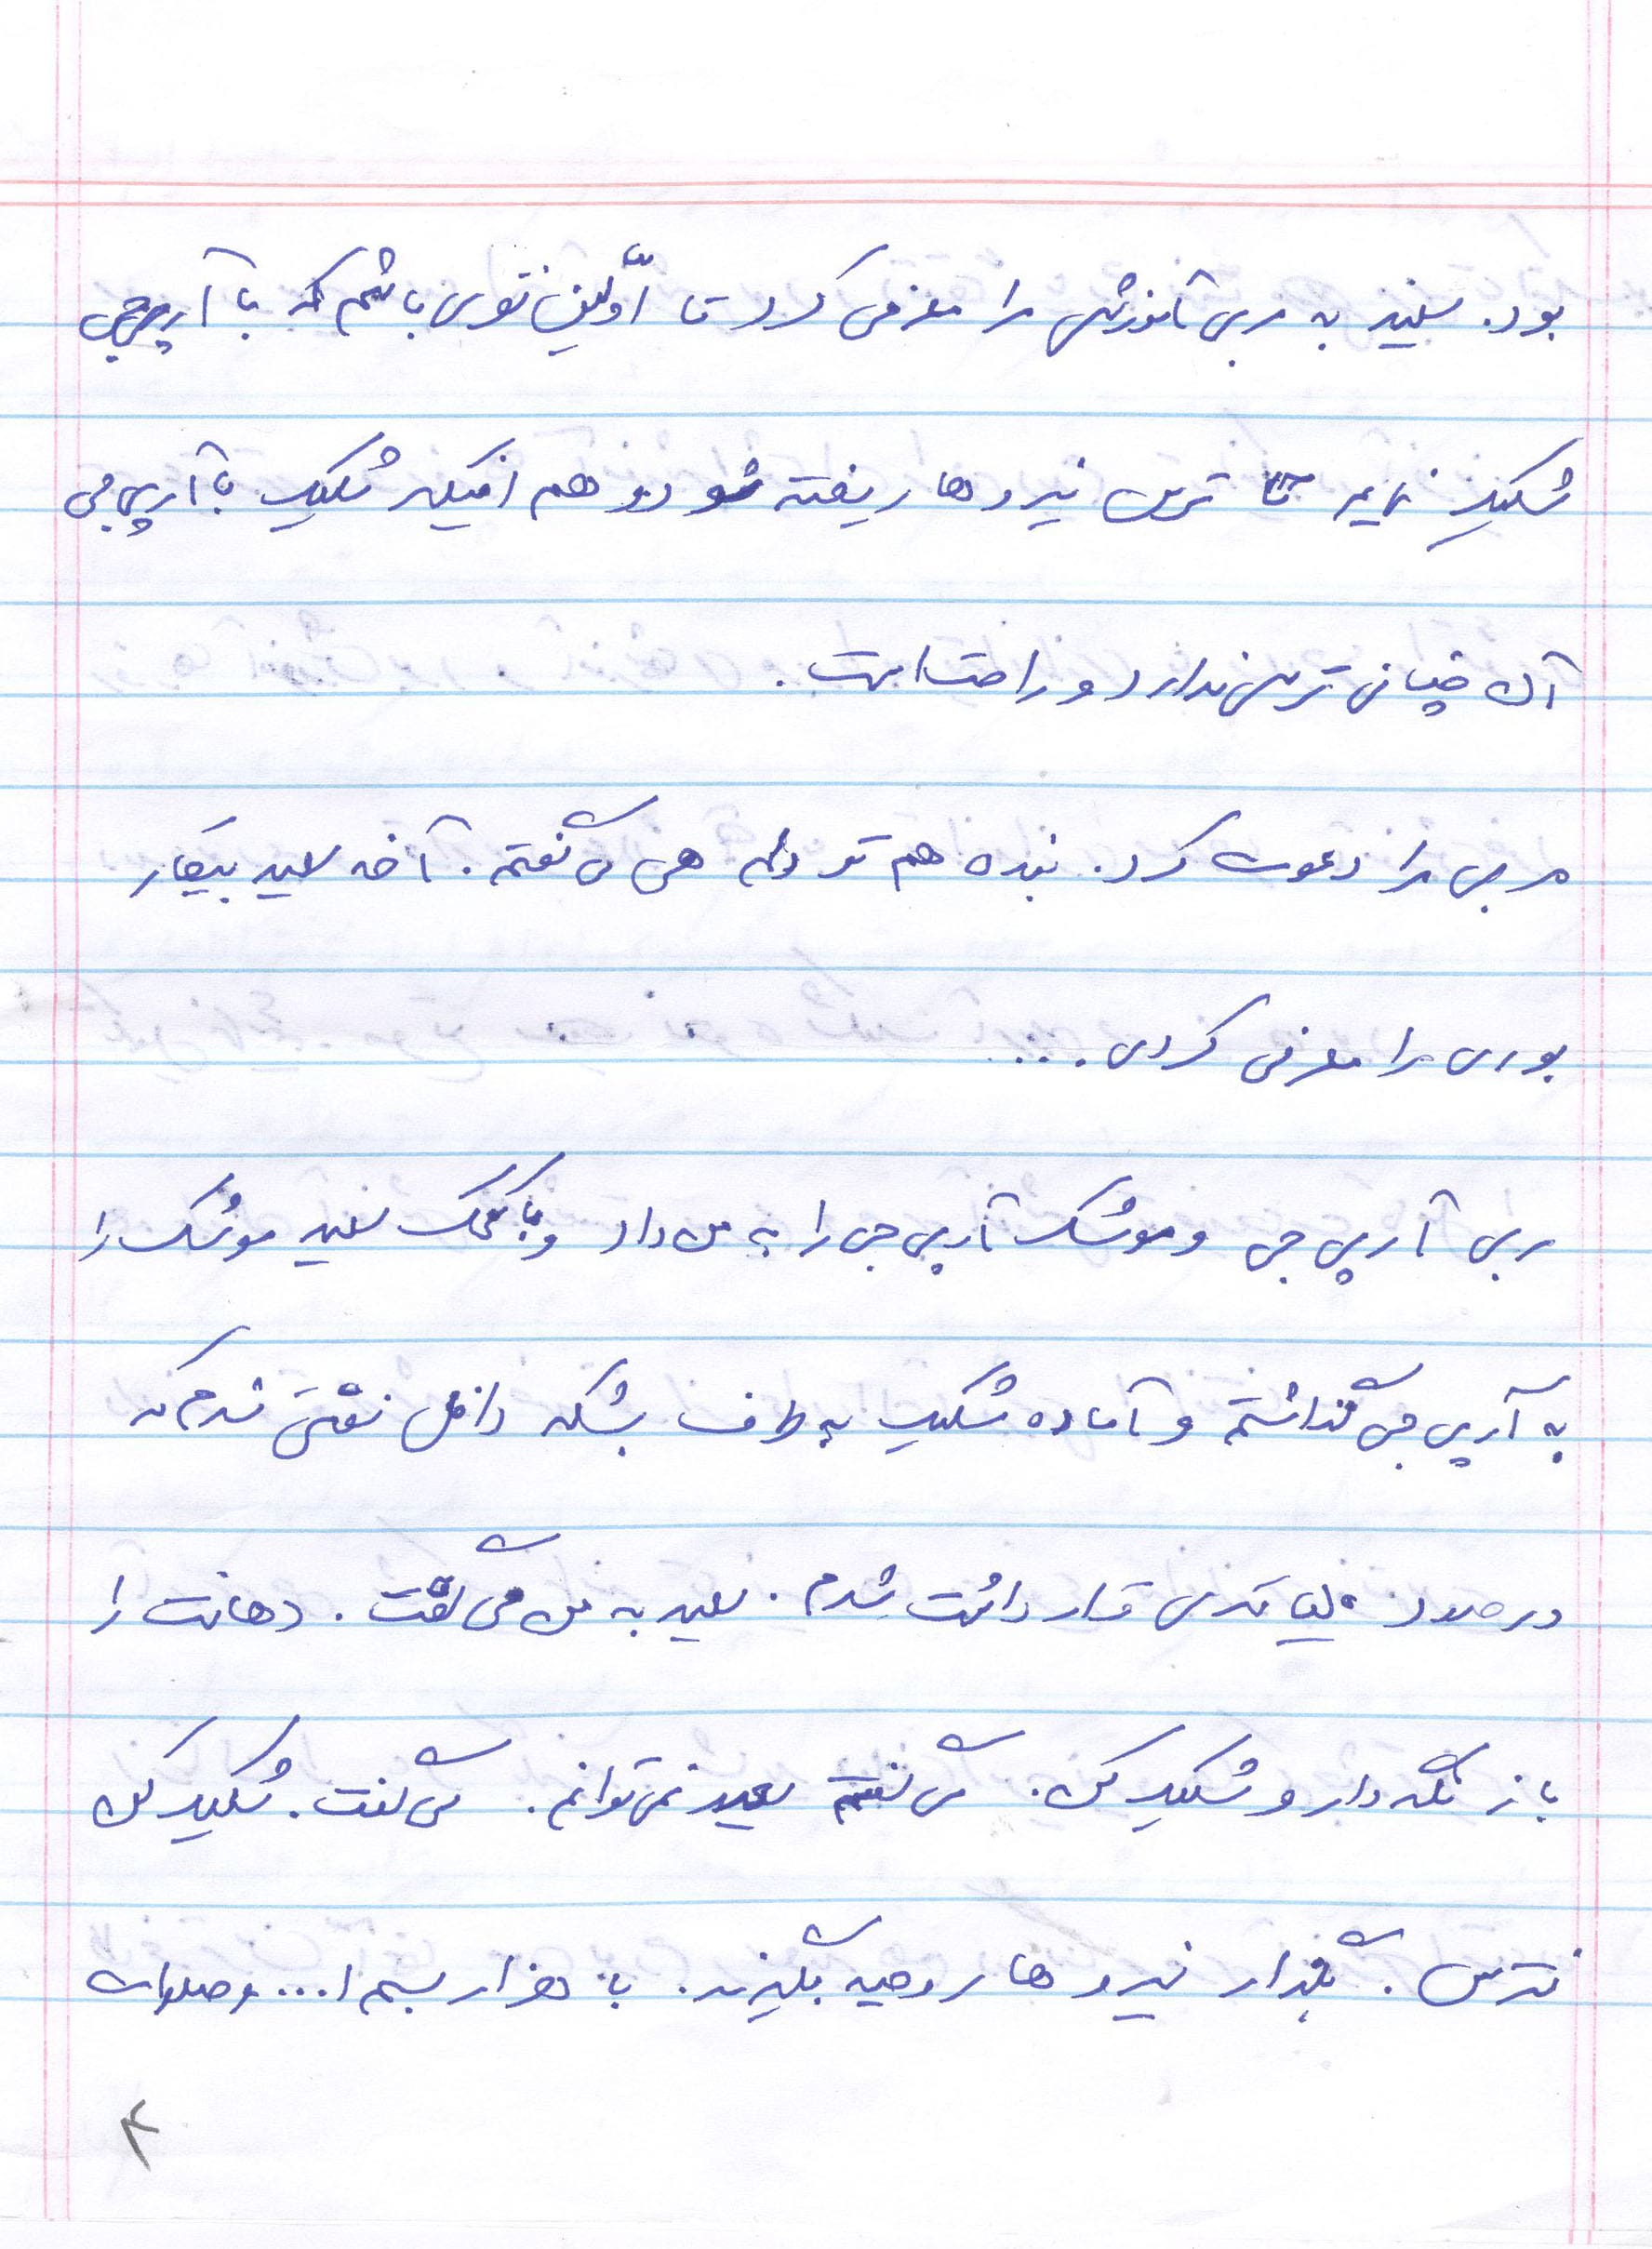 بود. سعید به مربی آموزش مرا معرفی کرد تا اوّلین نفری باشم که با آرپی‌جی
شلیک نمایم تا ترس نیروها ریخته شود و هم اینکه شلیک با آرپی جی
آن چنانی ترس ندارد و راحت است.
مربی مرا دعوت کرد. بنده هم تو دلم هی می گفتم. آخه سعید بیکار
بودی مرا معرفی کردی....
مربی آرپی جی و موشک آرپی جی را به من داد و با کمک سعید موشک را
به آرپی جی گذاشتم و آماده شلیک به طرف بشکه داخل نفتی شدم که
در حدود متری قرار داشت شدم. سعید به من می گفت. دهانت را
باز نگه دار و شلیک کن. می گفتم سعید نمی توانم. می گفت. شلیک کن
نترس. بگذار نیروها روحیه بگیرند. با هزار بسم ا... و صلوات
۸